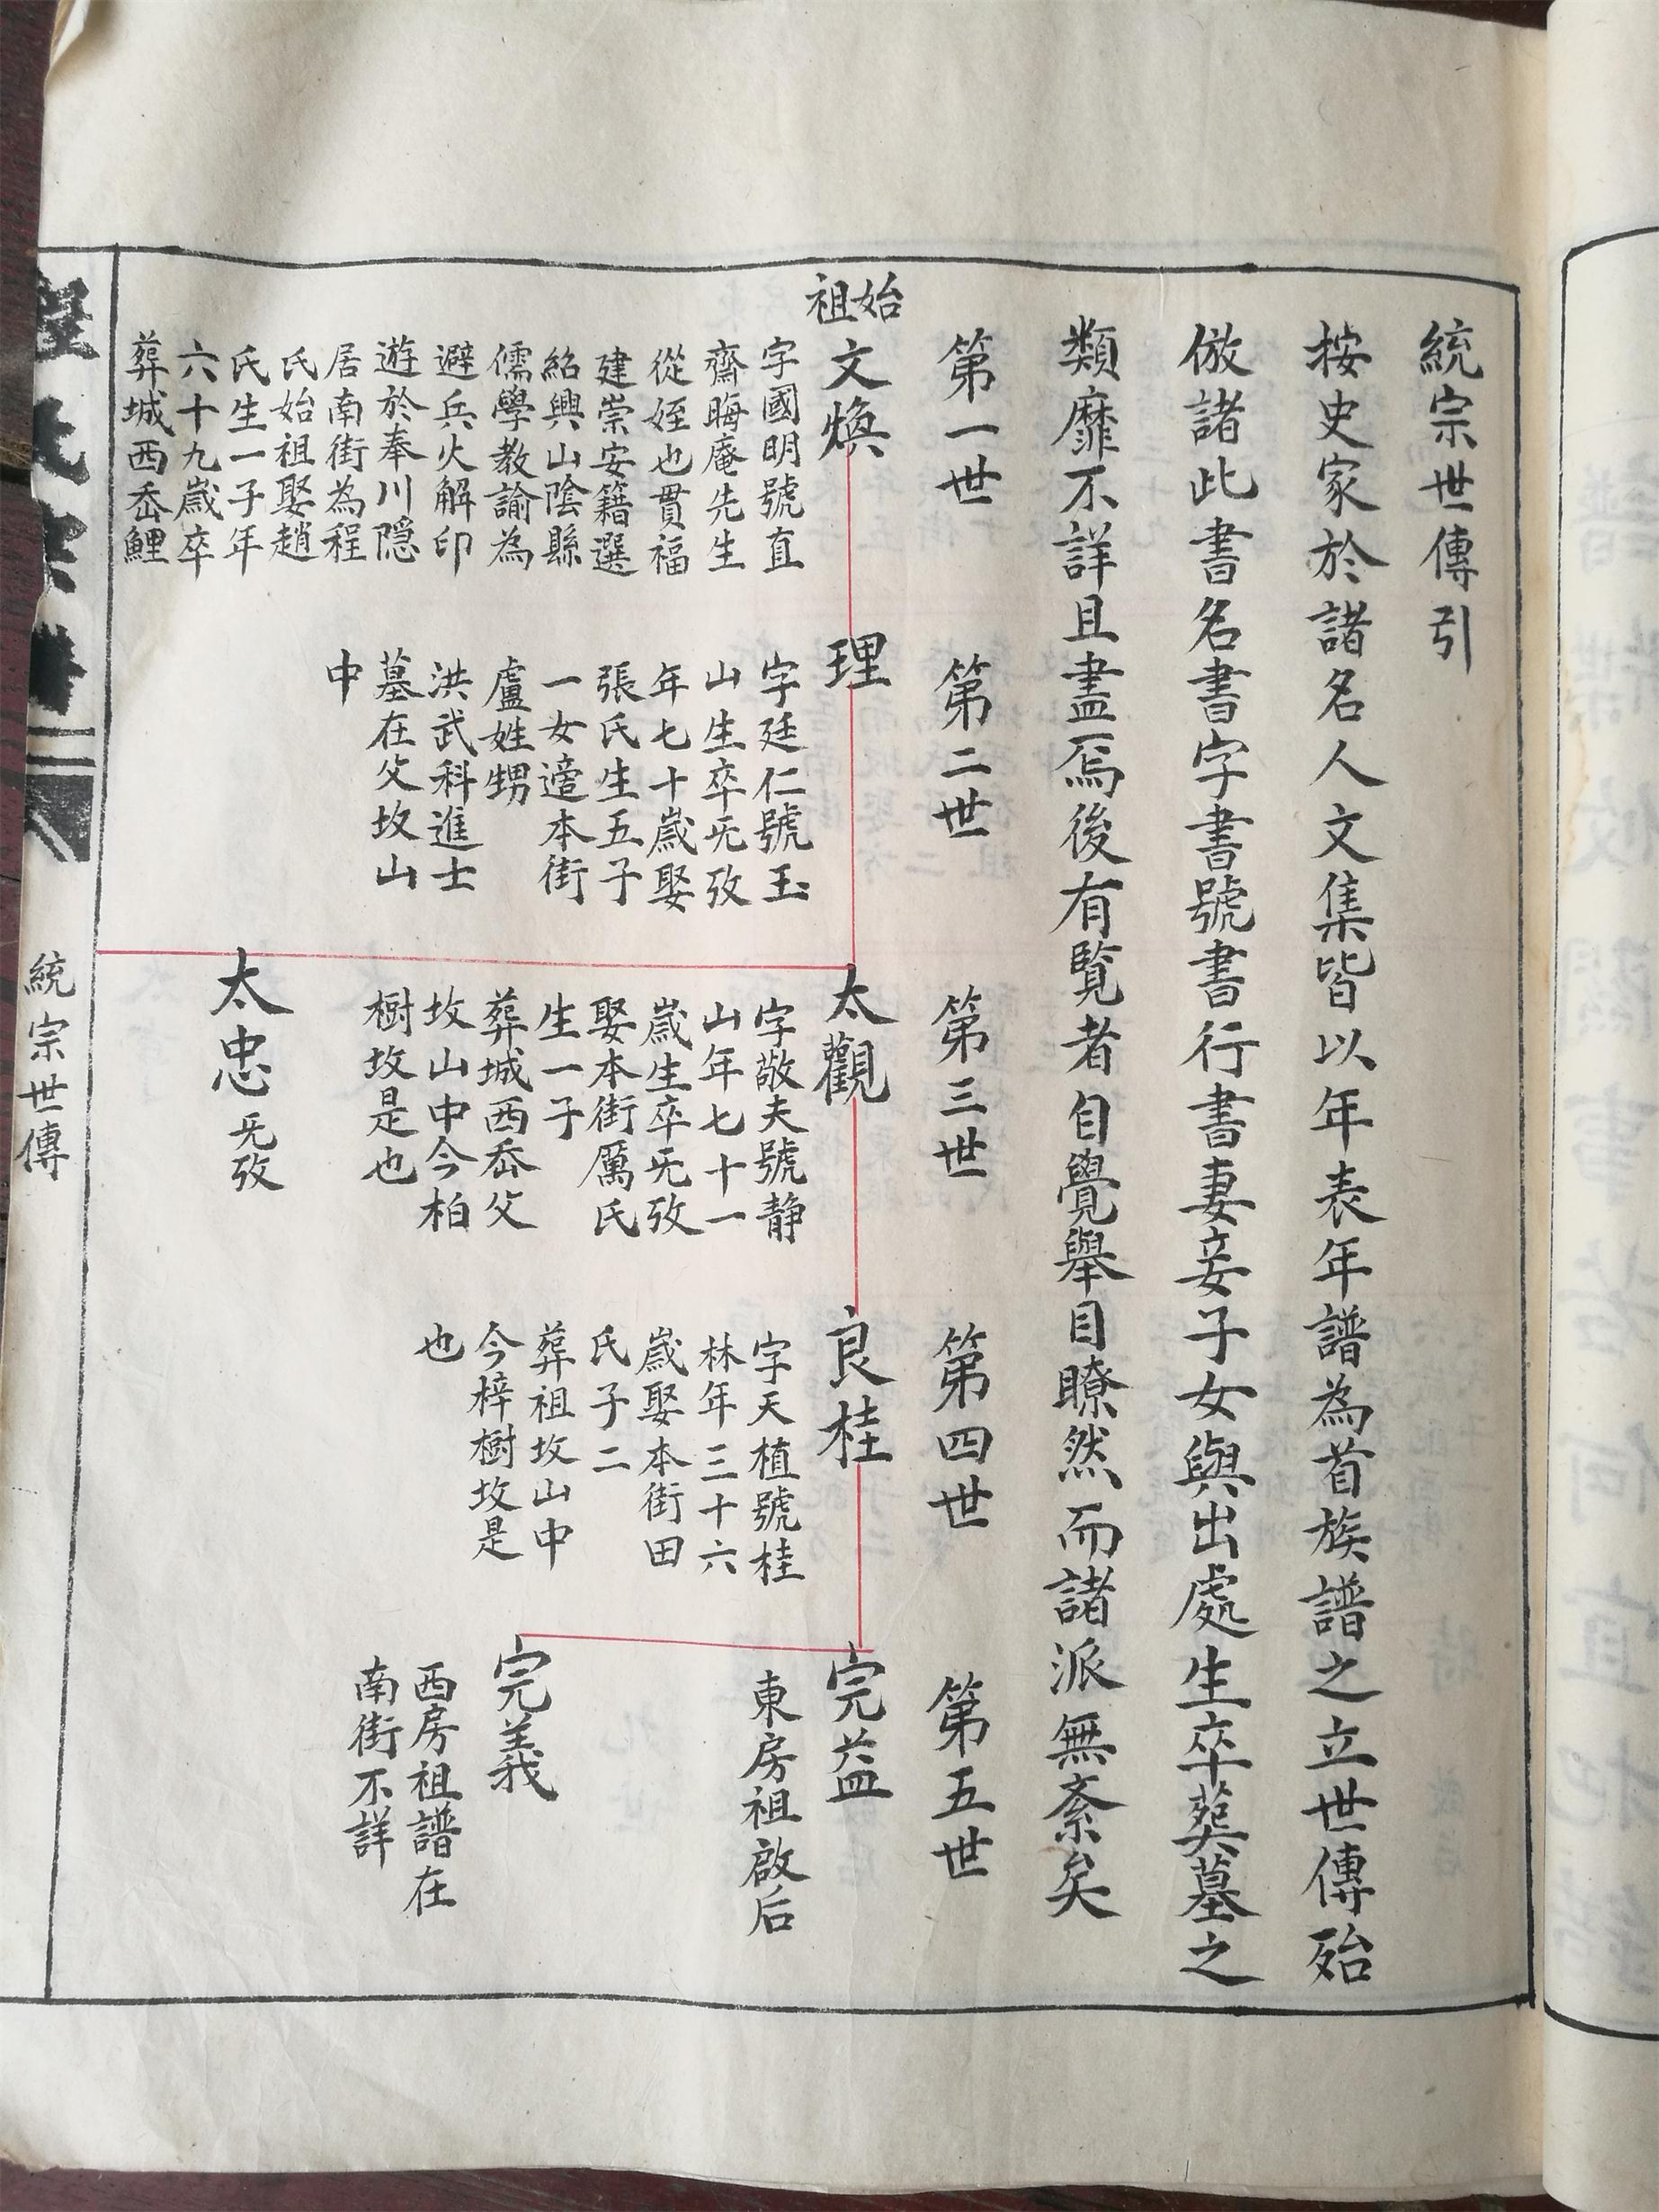 統宗世傳引
按史家於諸名人文集皆以年表年譜為首族譜之立世傳殆
倣諸此書名書字書號書行書妻妾子女與出處生卒葬墓之
類靡不詳且盡焉後有覽者自覺舉目瞭然而諸派無紊矣
第一世
第二世
第三世
第四世
第五世
始祖
文煥
字國明號直
齋晦庵先生
從姪也貫福
建崇安籍選
紹興山陰縣
儒學教諭為
避兵火解印
遊於奉川隱
居南街為程
氏始祖娶趙
氏生一子年
六十九歲卒
葬城西岙鯉
理
字廷仁號玉
山生卒旡攷
年七十歲娶
張氏生五子
一女適本街
盧姓甥
洪武科進士
墓在父坟山
中
太觀
字敬夫號静
山年七十一
歲生卒旡攷
娶本街厲氏
生一子
葬城西岙父
坟山中今柏
樹坟是也
太忠
旡攷
良桂
字天植號桂
林年三十六
歲娶本街田
氏子二
葬祖坟山中
今梓樹坟是
也
完益
東房祖啟后
完義
西房祖譜在
南街不詳
程氏宗譜
統宗世傳